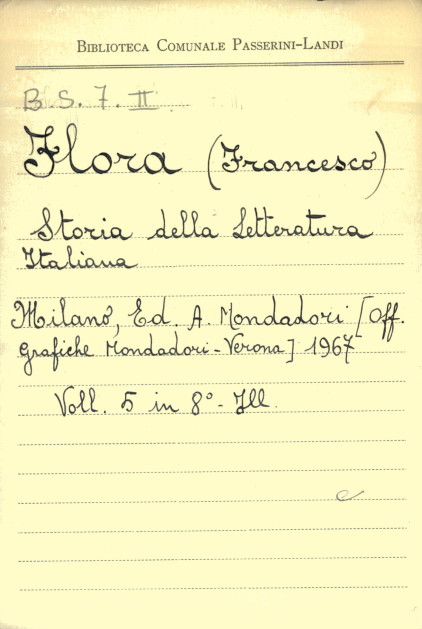 BIBLIOTECA COMUNALE PASSERINI-LANDI
B. S. 7. II
Flora (Francesco)
Storia della Letteratura
Italiana
Milano, Ed. A. Mondadori [Off.
Grafiche Mondadori-Verona] 1967
Voll. 5 in 8° - Ill.
e